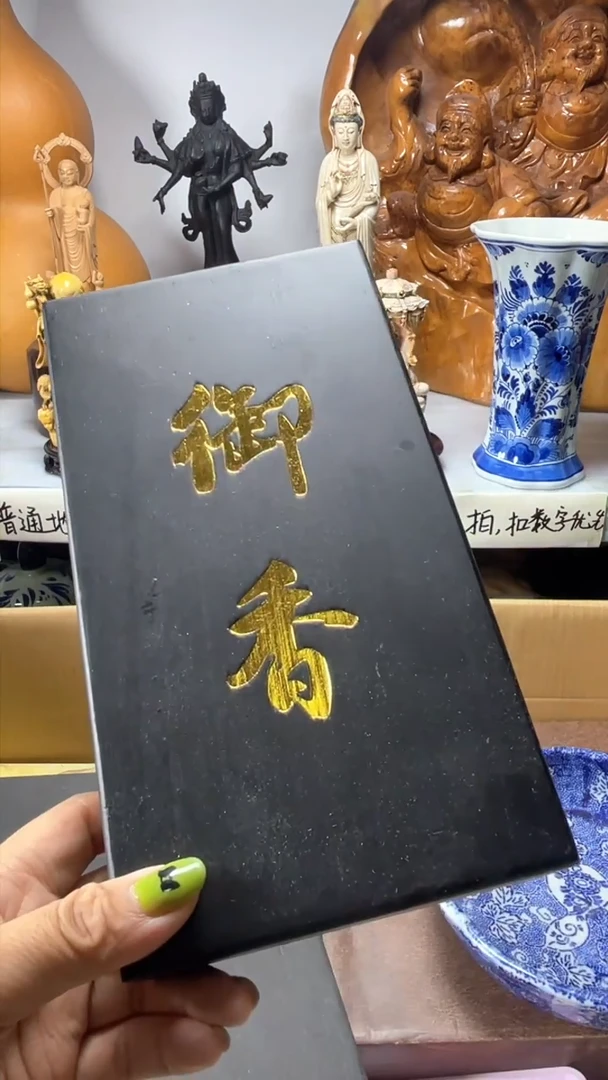 御
香
普通地
拍,扣数字优先